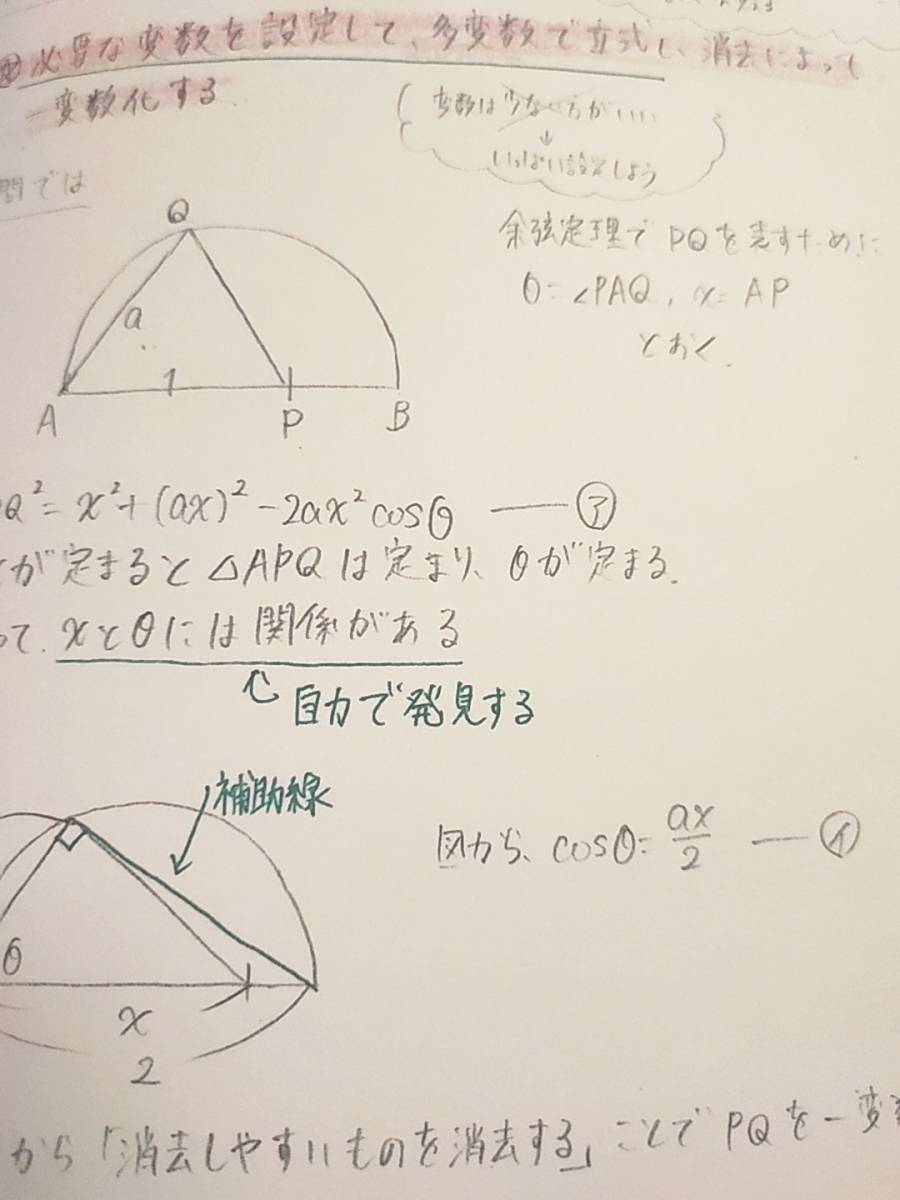 必要な変数を設定して、多変数で立式し、消去によって
一変数化する
変数は少ない方がいい
↓
いっぱい設定しよう
問では
Q
a
1
A P B
余弦定理でPQを表すために
θ=∠PAQ, x=AP
とおく.
Q²=x²+(ax)²-2ax²cosθ ―― ㋐
が定まると△APQは定まり、θが定まる.
って.xとθには関係がある
自力で発見する
補助線
図から、cosθ=ax/2 ―― ㋑
θ
x
2
から「消去しやすいものを消去する」ことでPQを一変